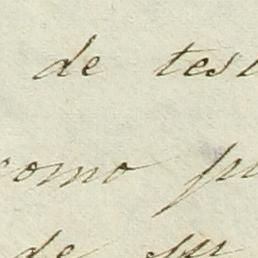 de tes
como pu
de su